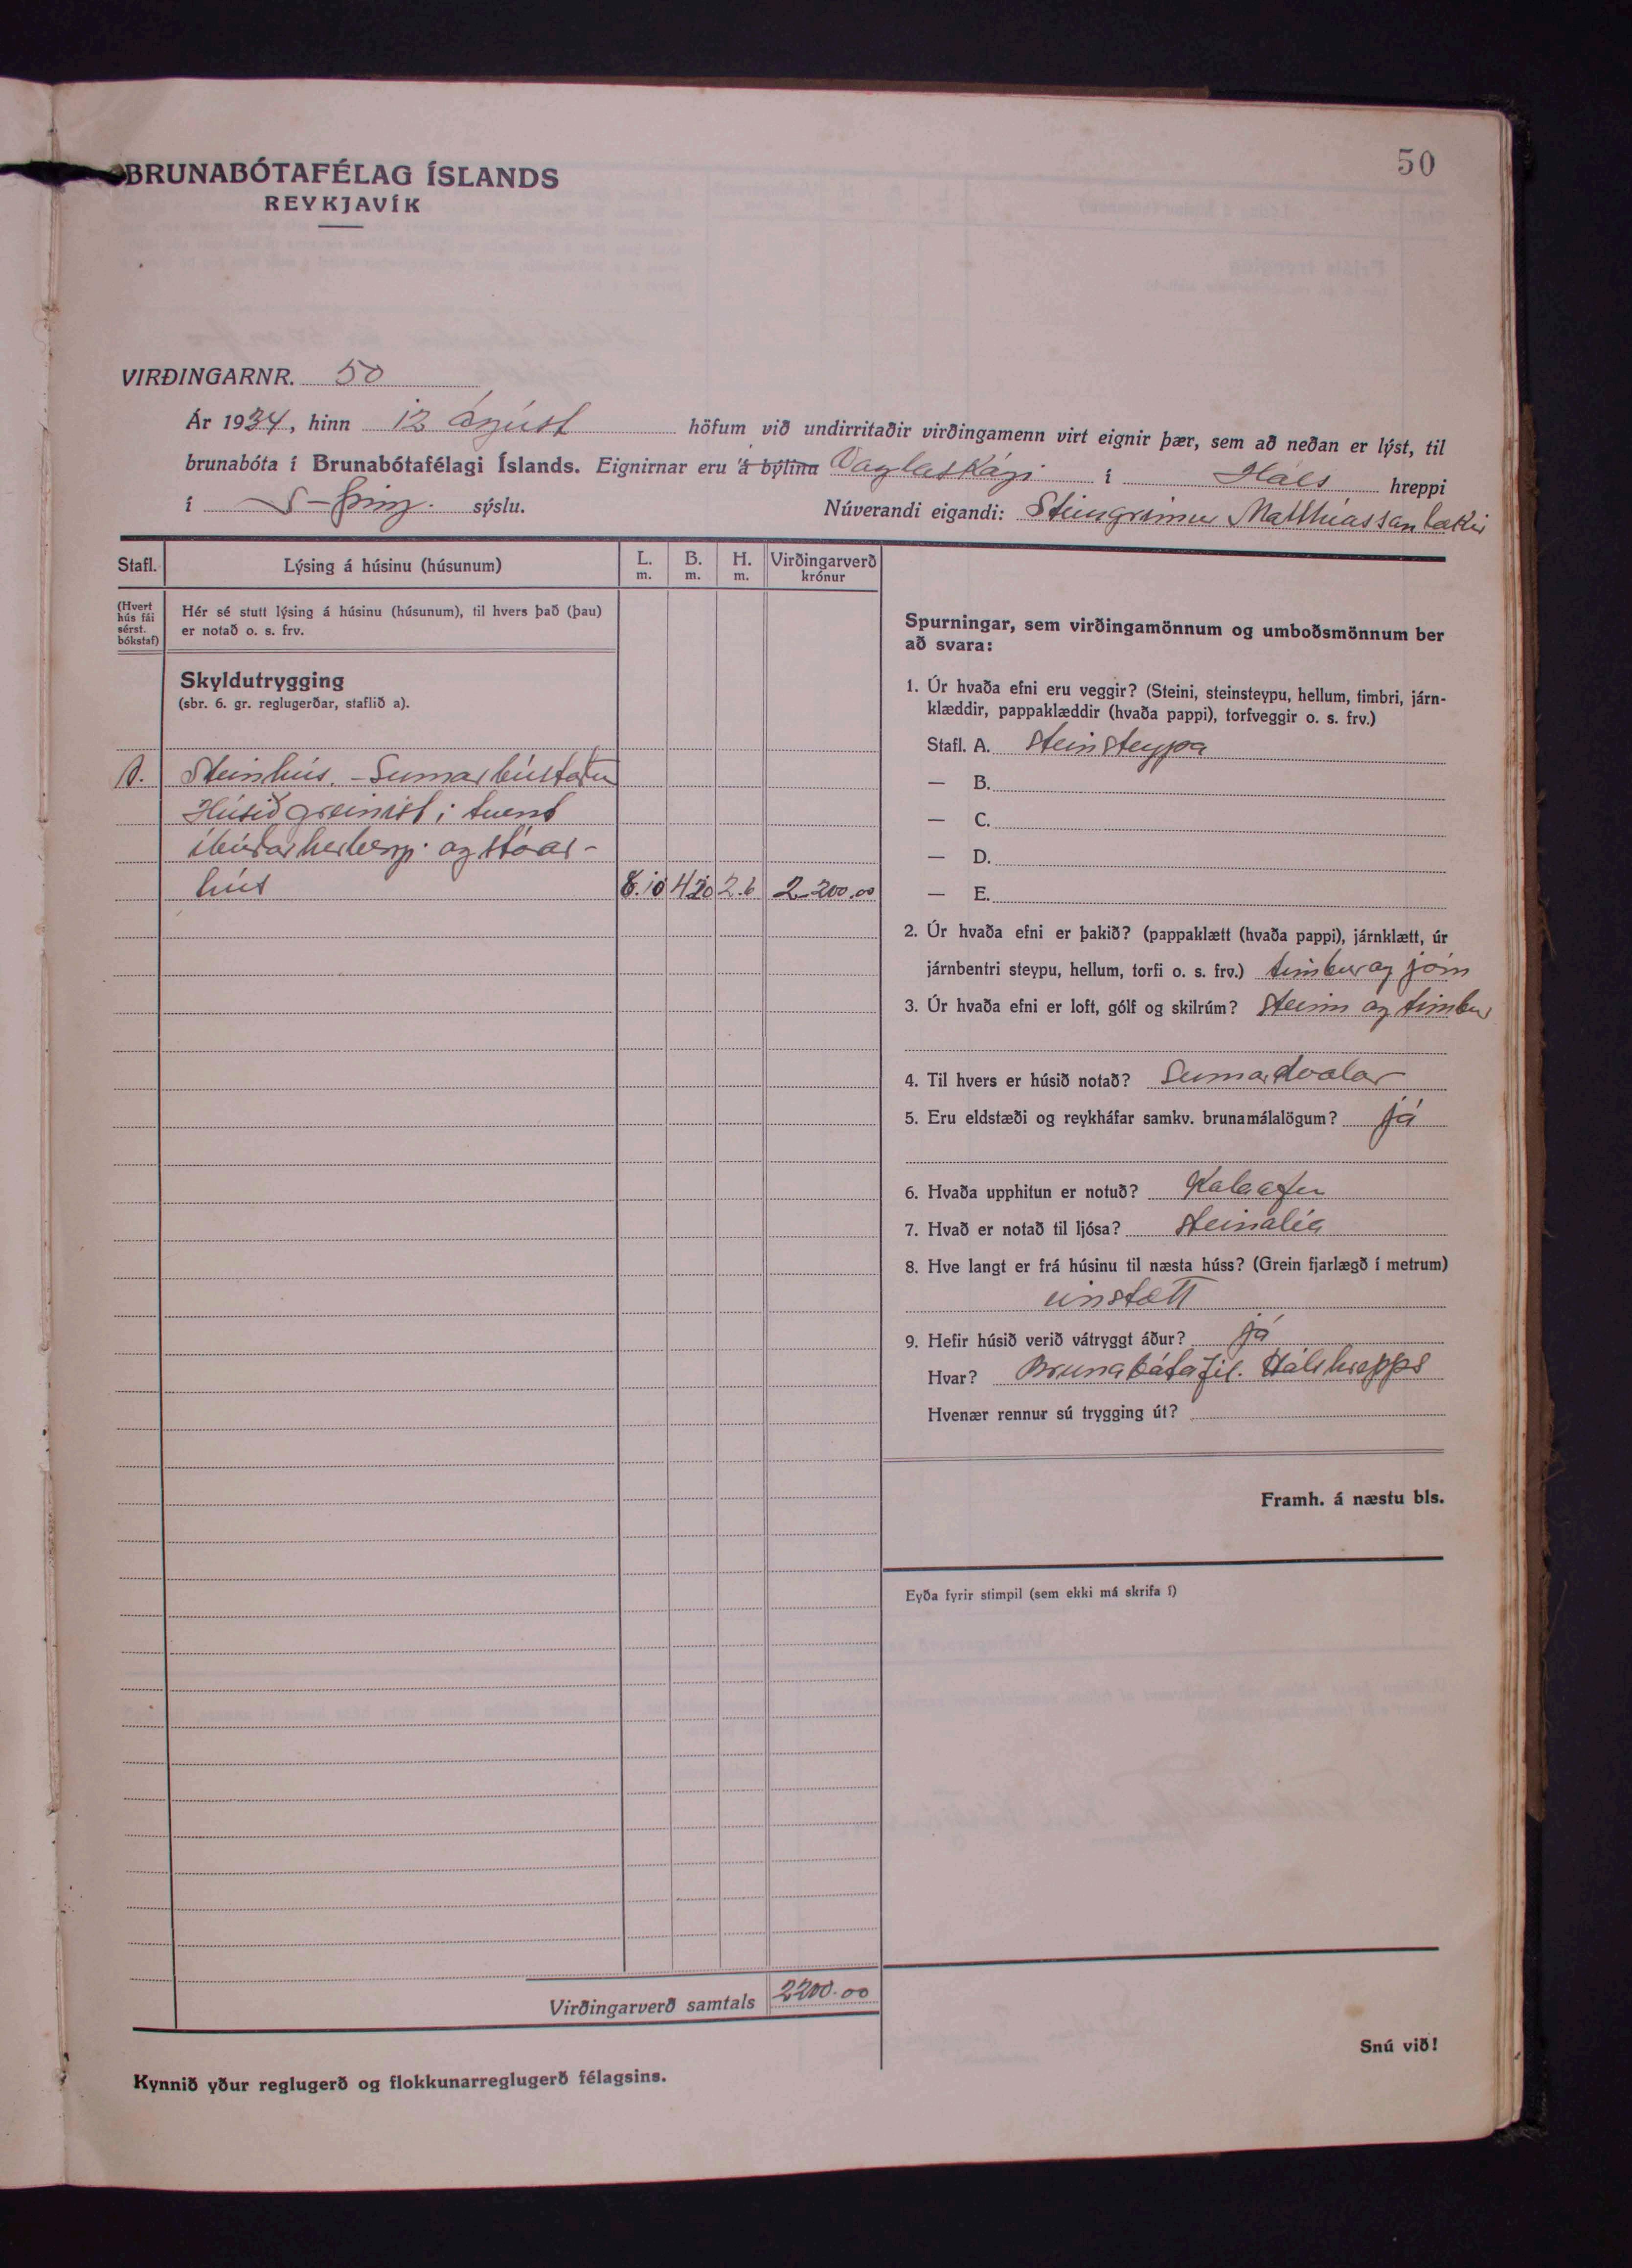 50
BRUNABÓTAFÉLAG ÍSLANDS
REYKJAVÍK
VIRÐINGARNR. 50
Ár 1934, hinn 12 ágúst höfum við undirritaðir virðingamenn virt eignir þær, sem að neðan er lýst, til
brunabóta í Brunabótafélagi Íslands. Eignirnar eru á býlinu Vaglaskógi í Háls hreppi
í S-Þing. sýslu. Núverandi eigandi: Steingrímur Matthíasson læknir
Stafl.
Lýsing á húsinu (húsunum)
L. m.
B. m.
H. m.
Virðingarverð krónur
(Hvert hús fái sérst. bókstaf)
Hér sé stutt lýsing á húsinu (húsunum), til hvers það (þau)
er notað o. s. frv.
Skyldutrygging
(sbr. 6. gr. reglugerðar, staflið a).
A. Steinhús. - Sumarbústaður
Húsið greinist í tvent
íbúðarherbergi og stóar-
hús 8.10 4.20 2.6 2200.00
Virðingarverð samtals 2200.00
Kynnið yður reglugerð og flokkunarreglugerð félagsins.
Spurningar, sem virðingamönnum og umboðsmönnum ber
að svara:
1. Úr hvaða efni eru veggir? (Steini, steinsteypu, hellum, timbri, járn-
klæddir, pappaklæddir (hvaða pappi), torfveggir o. s. frv.)
Stafl. A. Steinsteypa
— B.
— C.
— D.
— E.
2. Úr hvaða efni er þakið? (pappaklætt (hvaða pappi), járnklætt, úr
járnbentri steypu, hellum, torfi o. s. frv.) timbur og járn
3. Úr hvaða efni er loft, gólf og skilrúm? Steinn og timbur
4. Til hvers er húsið notað? Sumardvalar
5. Eru eldstæði og reykháfar samkv. brunamálalögum? já
6. Hvaða upphitun er notuð? Kolaofn
7. Hvað er notað til ljósa? Steinolía
8. Hve langt er frá húsinu til næsta húss? (Grein fjarlægð í metrum)
einstætt
9. Hefir húsið verið vátryggt áður? já
Hvar? Brunabótafél. Hálshrepps
Hvenær rennur sú trygging út?
Framh. á næstu bls.
Eyða fyrir stimpil (sem ekki má skrifa í)
Snú við!